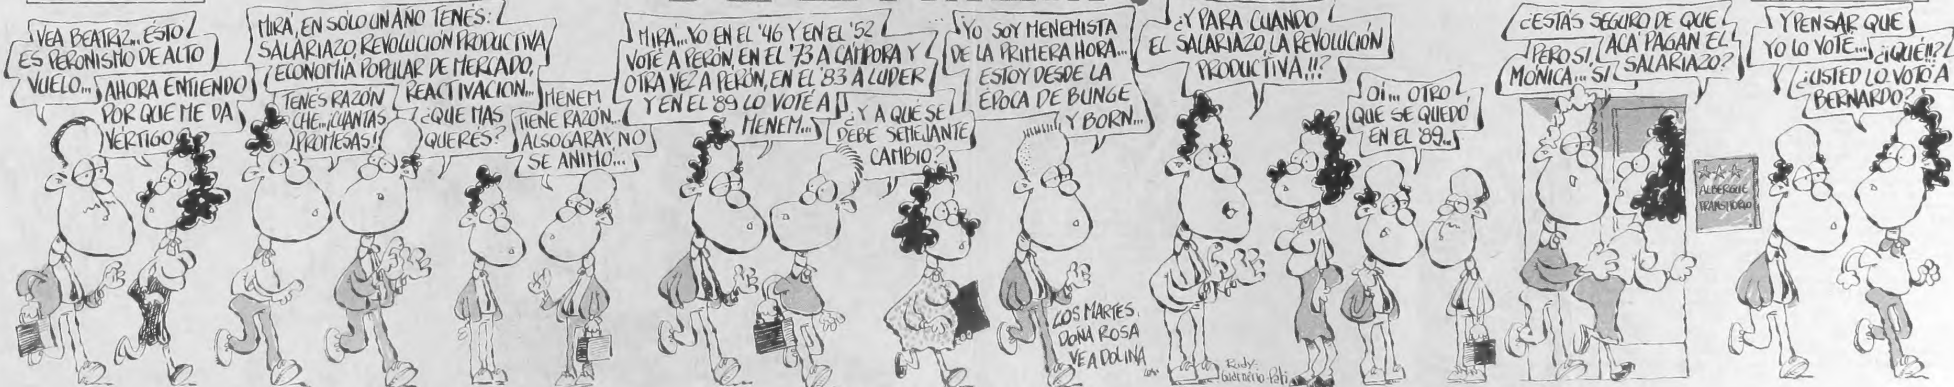 VEA BEATRIZ... ÉSTO
ES PERONISMO DE ALTO
VUELO...
AHORA ENTIENDO
POR QUE ME DA
VÉRTIGO
MIRÁ, EN SÓLO UN AÑO TENÉS:
SALARIAZO, REVOLUCIÓN PRODUCTIVA,
ECONOMÍA POPULAR DE MERCADO,
REACTIVACION...
¿QUE MAS
QUERES?
TENÉS RAZÓN
CHE... ¡CUANTAS
PROMESAS!
MENEM
TIENE RAZÓN...
ALSOGARAY NO
SE ANIMO...
MIRÁ... YO EN EL '46 Y EN EL '52
VOTÉ A PERÓN, EN EL '73 A CÁMPORA Y
OTRA VEZ A PERÓN, EN EL '83 A LUDER
Y EN EL '89 LO VOTÉ A
MENEM...
¿Y A QUÉ SE
DEBE SEMEJANTE
CAMBIO?
YO SOY MENEMISTA
DE LA PRIMERA HORA...
ESTOY DESDE LA
ÉPOCA DE BUNGE
Y BORN...
LOS MARTES,
DOÑA ROSA
VE A DOLINA
¿Y PARA CUANDO
EL SALARIAZO, LA REVOLUCIÓN
PRODUCTIVA!!?
OÍ... OTRO
QUE SE QUEDÓ
EN EL '89...
Rudy-
¿ESTÁS SEGURO DE QUE
ACÁ PAGAN EL
SALARIAZO?
PERO SI,
MÓNICA... SI
ALBERGUE
TRANSITORIO
Y PENSAR QUE
YO LO VOTÉ...
¿¡QUÉ!!?
¿USTED LO VOTÓ A
BERNARDO?